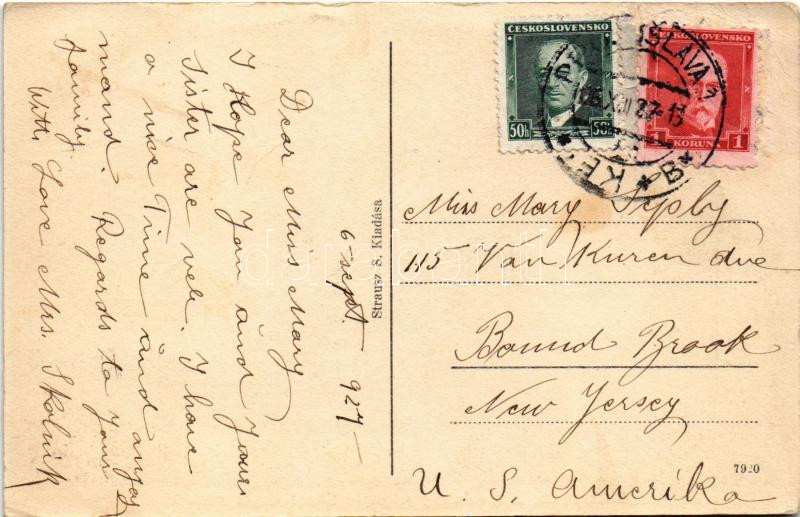 6 Sept. 927-
Dear Miss Mary
I Hope You and Your
Sister are vele. I have
a nice Time and
mand. Regards to Your
family.
With Love Mrs. Skolnik
Strausz S. Kiadása
ČESKOSLOVENSKO
50h 50h
ČESKOSLOVENSKO
1 KORUNA 1
Miss Mary
115 Van Kuren Ave
Bound Brook
New Jersey
U. S. Amerika
7920
darabanth